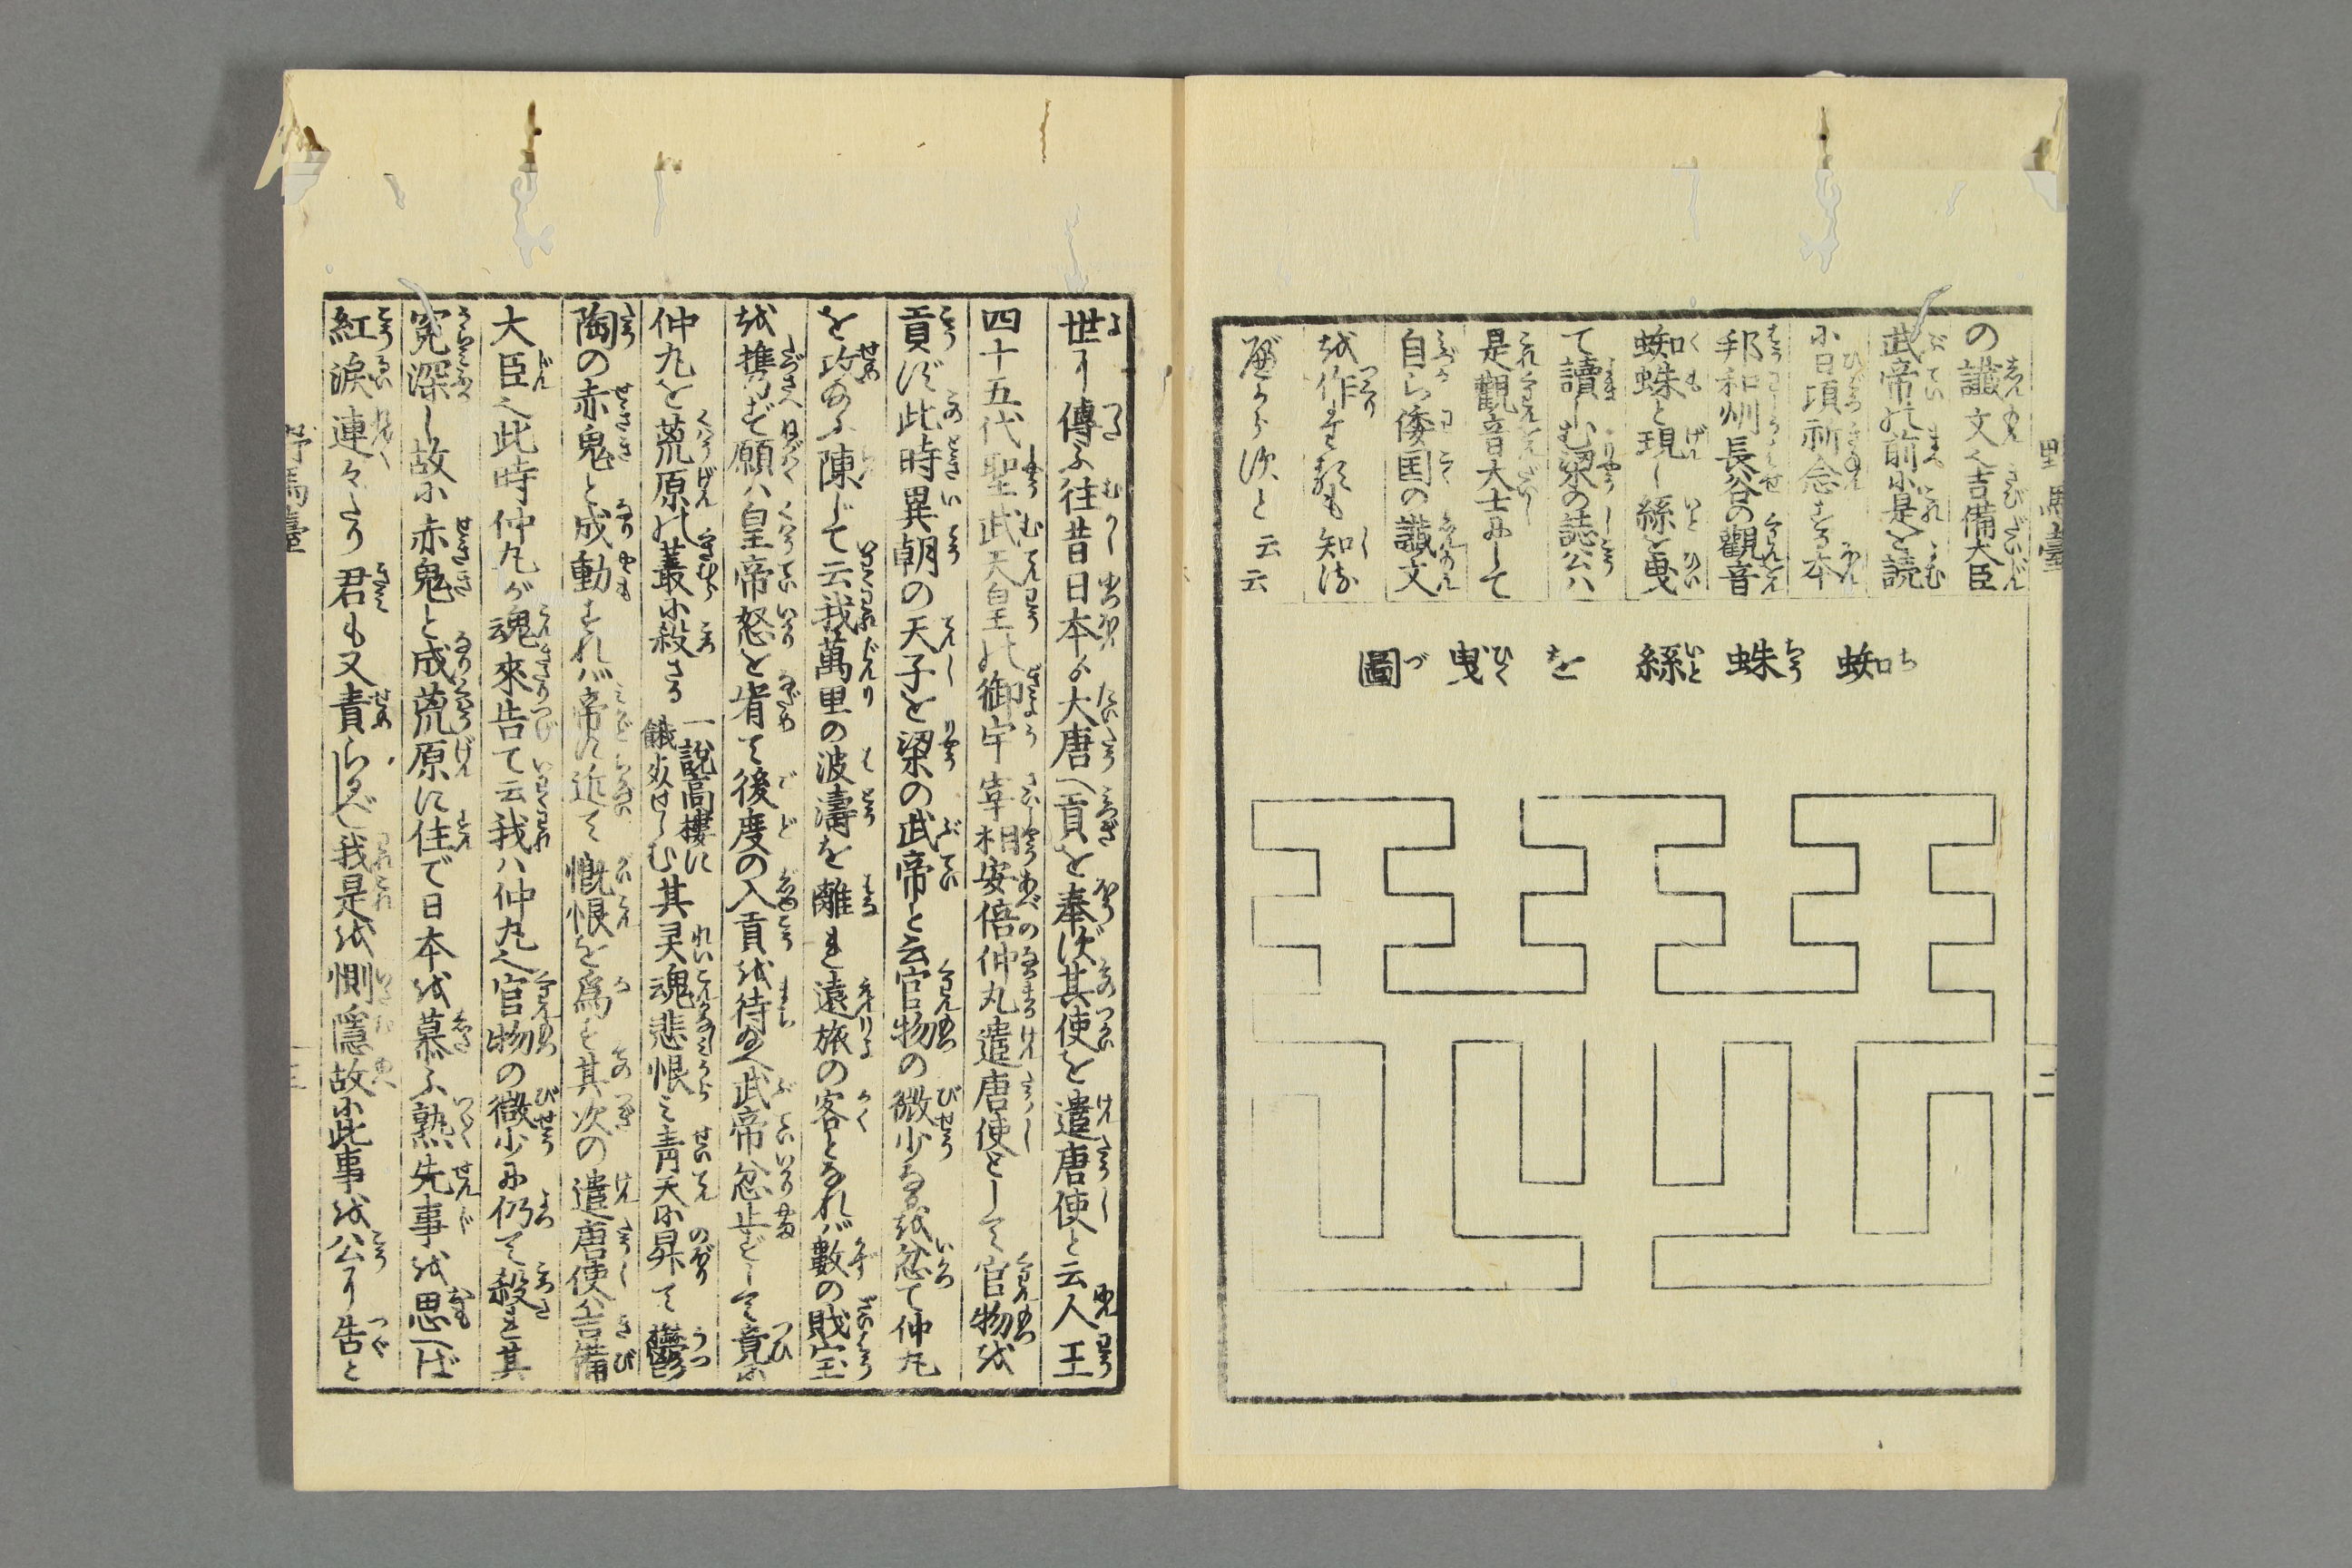 野馬臺
の讖文ハ吉備大臣
武帝の前に是を読
に日頃祈念する本
邦和州長谷の觀音
蜘蛛と現し絲を曳
て讀しむ梁の誌公ハ
是觀音大士にして
自ら倭国の讖文
を作る歟も知ル
べからずと云云
蜘蛛絲を曳圖
二
世に傳ふ往昔日本より大唐へ貢を奉ず其使を遣唐使と云人王
四十五代聖武天皇の御宇宰相安倍仲丸遣唐使として官物を
貢ず此時異朝の天子を梁の武帝と云官物の微少なるを忿て仲丸
を攻めふ陳じて云我萬里の波濤を離れ遠旅の客となれバ數の賎宝
を携ず願ハ皇帝怒を宥て後度の入貢を待給へ武帝忿止ずして竟に
仲丸を荒原の叢に殺さる
一說高樓に
餓死せしむ
其灵魂悲恨ミ青天に昇て鬱
陶の赤鬼と成動すれバ帝に近て慨恨を為す其次の遣唐使ハ吉備
大臣ハ此時仲丸が魂來告て云我ハ仲丸ハ官物の微少に仍て殺され其
寃深し故に赤鬼と成荒原に住で日本を慕ふ熟先事を思へば
紅淚連々たり君も又責らるべし我是を惻隱故に此事を公に告と
野馬臺
三